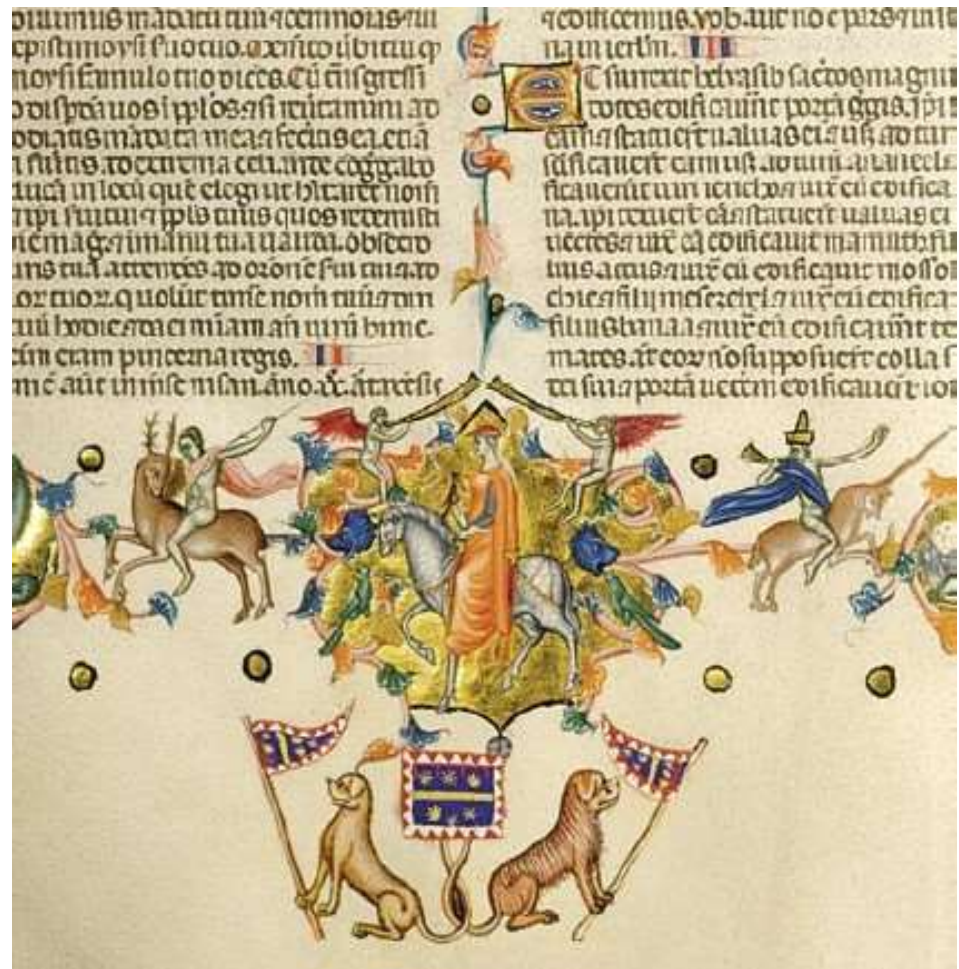 diuimus mādatū tuū ⁊ cerimonias ⁊ iu
cepisti moysi suo tuo.
moysi famulo tuo dicēs. Cū
o dispgā uos ī pplos ⁊ si reūtamini ad
odiatis mādata mea ⁊ fecitis ea. etiā
ad extrema celi. inde cōggabo
ducā in locū quē elegi ut hītaret nom̄
ipi sui tui ⁊ ppls tuus quos redemisti
mag. ⁊ i manu tua ualida. obsecro
tua attendēs ad orōnē sui tui ⁊ ad
tuor. q uolūt timē nom̄ tuū ⁊ diri
tuū hodie ⁊ da ei mīam añ uirū hunc
enim eram pincerna regis. II
aūt in mēse nisan. āno. xx. artxersis
⁊ edificemus. uob. aūt nō ē pars ⁊ iusti
na in ierlm. III
Et surrexit helyasib sacdos magnus
dotes edificauerūt portā ggis. ipi
⁊ statuerūt ualuas ei. ⁊ usq ad tur
scificauerūt eam usq ad turrim ananeel ⁊
ficauerūt uiri iericho ⁊ iux eū edifica
na. ipi texerūt eā ⁊ statuerūt ualuas ei
uectes ⁊ iux eā edificauit marimuth fili
lius accus ⁊ iux eū edificauit mosollā
chie ⁊ filii mesezebel ⁊ iux eū edifica
filius baana ⁊ iux eū edificauerūt te
mates. at eor nō supposuerūt colla s
dei sui. ⁊ portā ueterem edificauerūt ioi